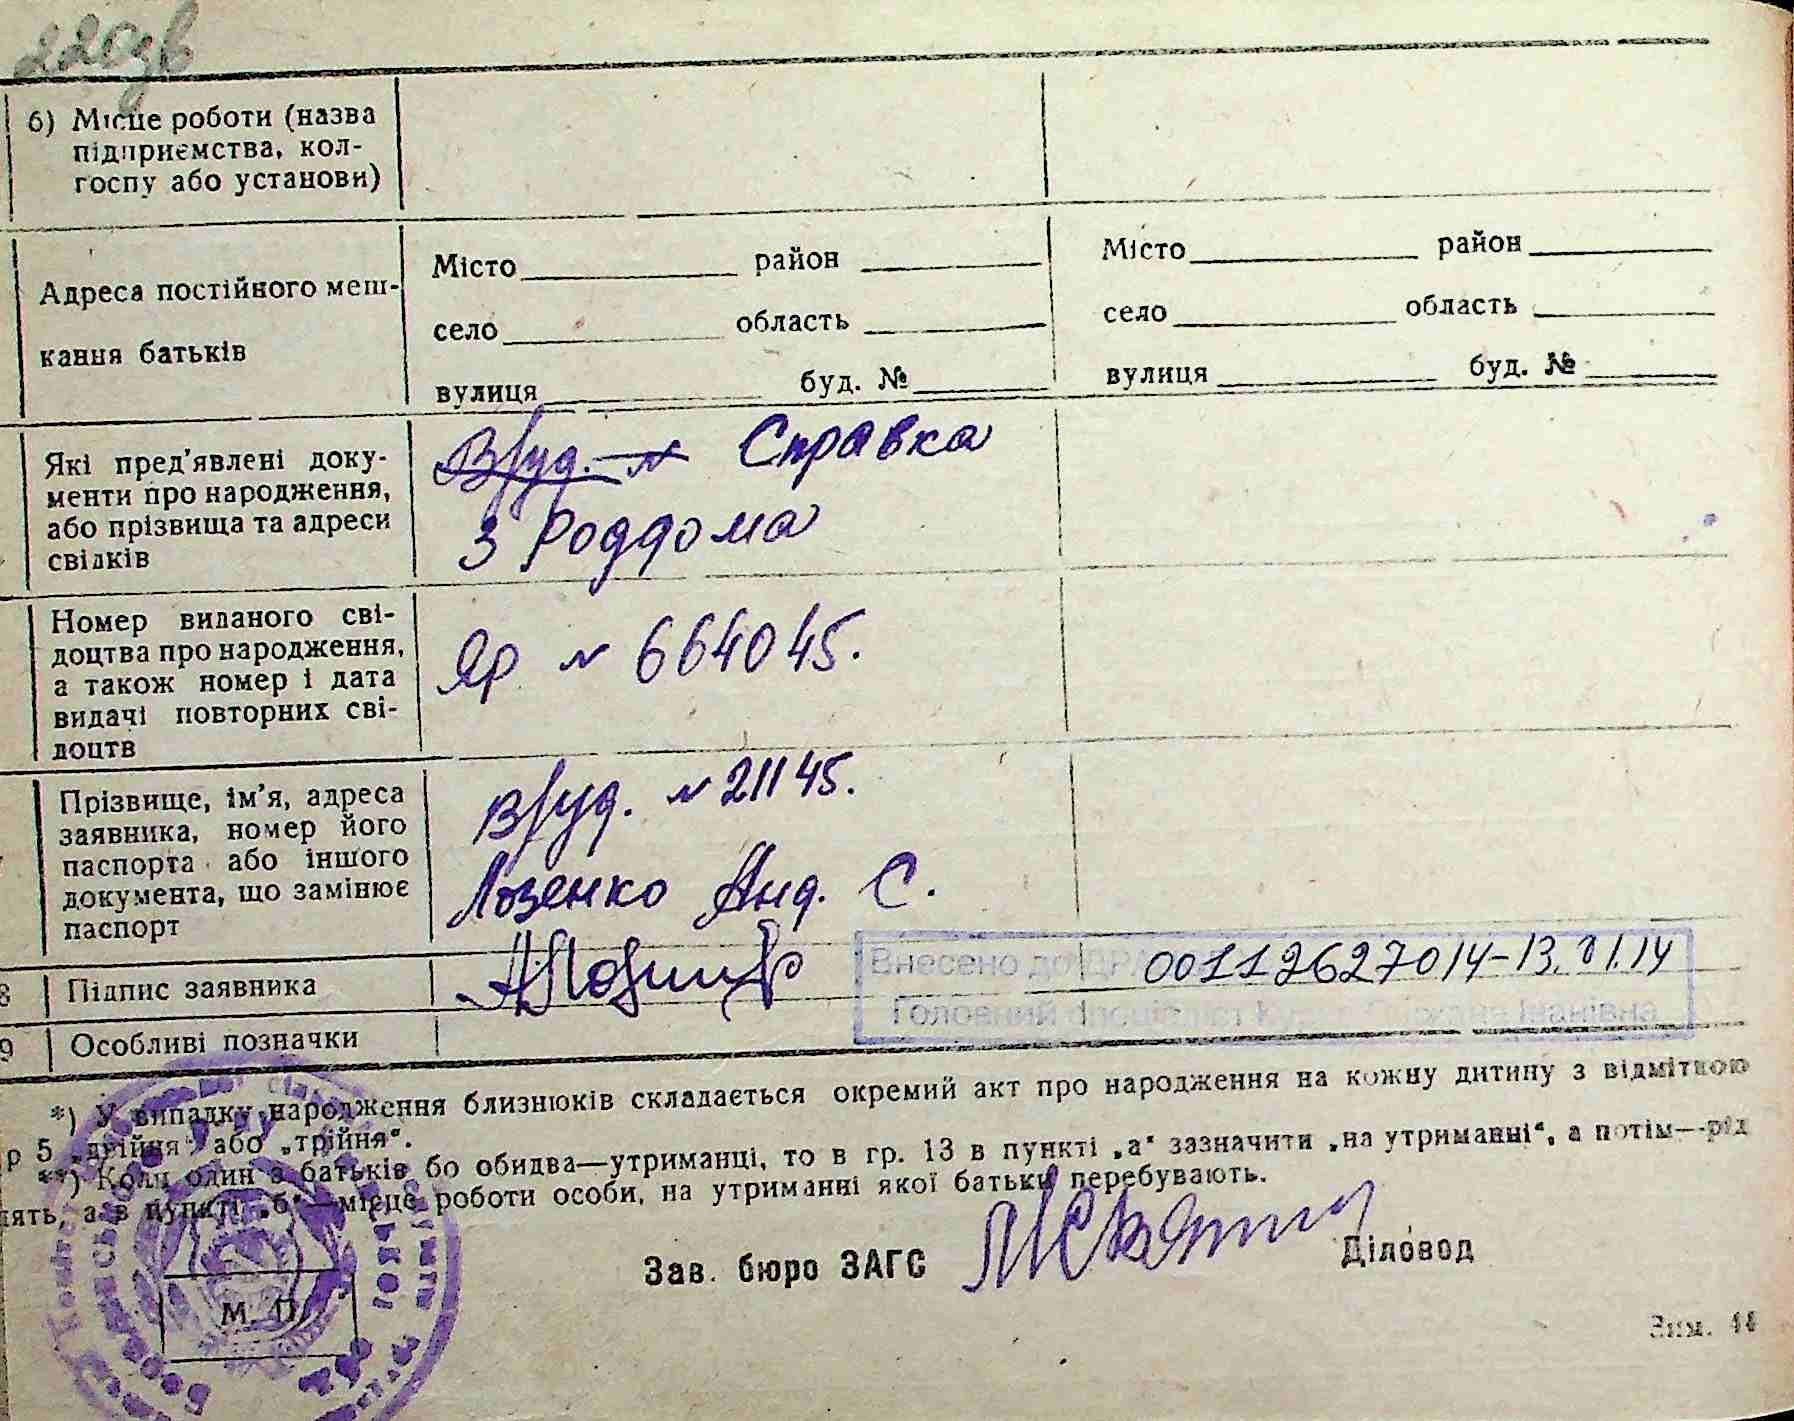 б) Місце роботи (назва
підприємства, кол-
госпу або установи)
Адреса постійного меш-
кання батьків
Місто район
село область
вулиця буд. №
Місто район
село область
вулиця буд. №
Які пред'явлені доку-
менти про народження,
або прізвища та адреси
свідків
В/уд. N Справка
з Роддома
Номер виданого сві-
доцтва про народження,
а також номер і дата
видачі повторних сві-
доцтв
Яр N 664045.
Прізвище, ім'я, адреса
заявника, номер його
паспорта або іншого
документа, що замінює
паспорт
В/уд. N 21145.
Лозенко Анд. С.
8 Підпис заявника
Внесено до ДРА 00112627014-13.01.14
Головний спеціаліст Іванівна
9 Особливі позначки
*) У випадку народження близнюків складається окремий акт про народження на кожну дитину з відміткою
р 5 „двійня" або „трійня".
**) Коли один з батьків бо обидва—утриманці, то в гр. 13 в пункті „а" зазначити „на утриманні", а потім—рід
ять, а в пункті „б"—місце роботи особи, на утриманні якої батьки перебувають.
Зав. бюро ЗАГС Діловод
М. П.
Зим. 44